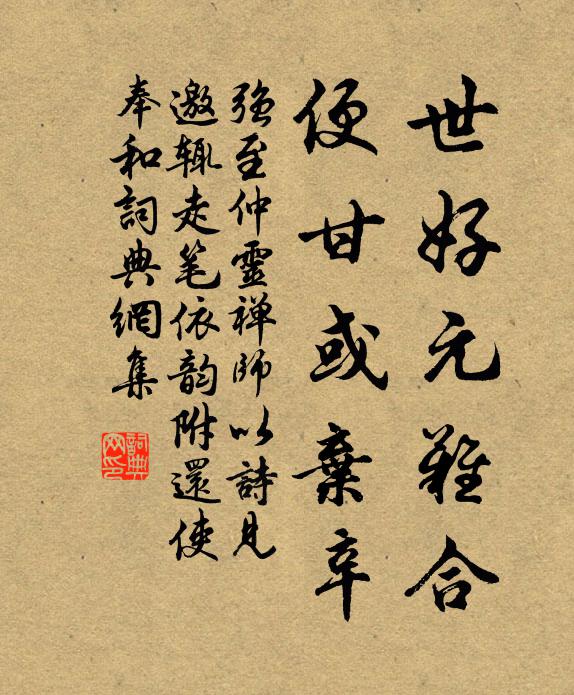 世好元難合
便甘或棄辛
强至仲靈禅師以詩見
邀輒走笔依韵附還使
奉和詞典網集
詞典
网印